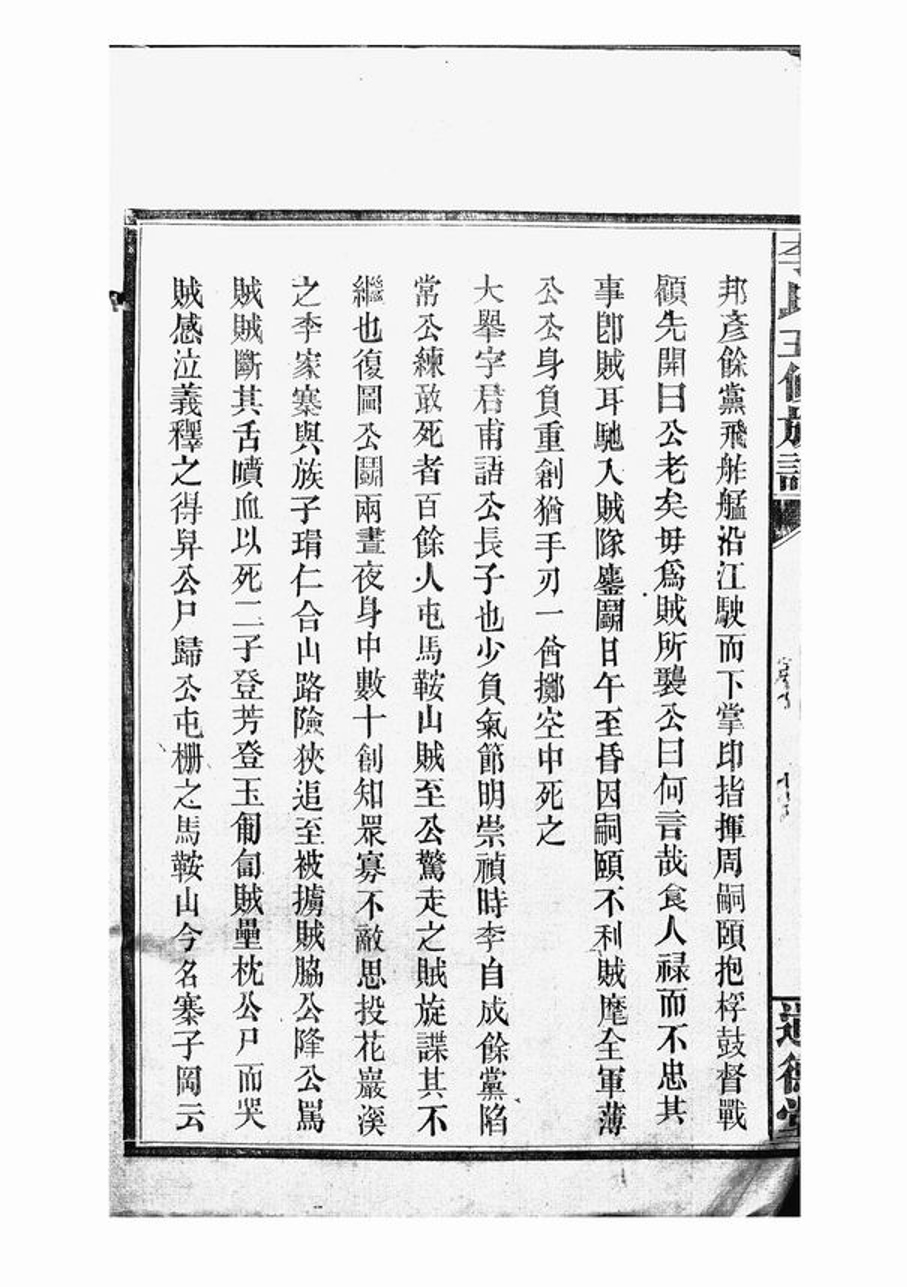 李氏五修族譜
道德堂
邦彥餘黨飛舴艋沿江駛而下掌印指揮周嗣頤抱桴鼓督戰
顧先開曰公老矣毋爲賊所襲公曰何言哉食人祿而不忠其
事卽賊耳馳入賊隊鏖鬭日午至昏因嗣頤不利賊麾全軍薄
公公身負重創猶手刃一酋擲空中死之
大舉字君甫語公長子也少負氣節明崇禎時李自成餘黨陷
常公練敢死者百餘人屯馬鞍山賊至公驚走之賊旋諜其不
繼也復圖公鬭兩晝夜身中數十創知眾寡不敵思投花巖溪
之李家寨與族子瑁仁合山路險狹追至被擄賊脇公降公罵
賊賊斷其舌噴血以死二子登芳登玉匍匐賊壘枕公尸而哭
賊感泣義釋之得舁公尸歸公屯柵之馬鞍山今名寨子岡云